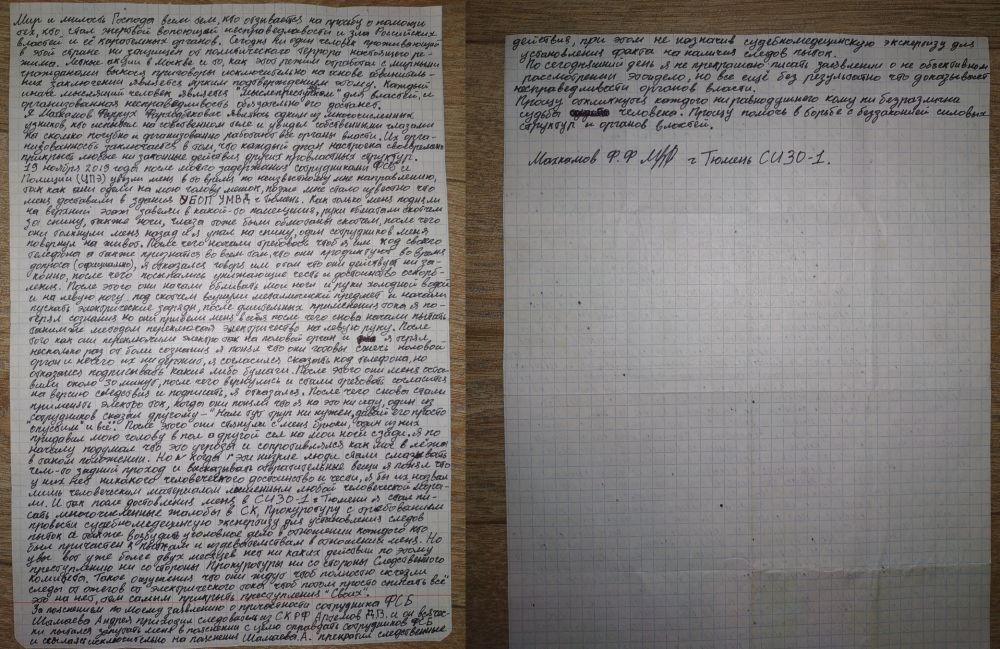 Мир и милость Господа всем тем, кто отзывается на просьбу о помощи
тех, кто стал жертвой вопиющей несправедливости и зла Российских
властей и её карательных органов. Сегодня ни один человек проживающий
в этой стране не защищен от политического террора настоящего ре-
жима. Мирные акции в Москве и то, как этот режим отработал с мирными
гражданами вынося приговоры исключительно на основе обвинитель-
ных заключений является ярким подтверждением этому. Каждый
иначе мыслящий человек является "Мыслепреступн" для властей, и
организованная несправедливость обязательно его достанет.
Я Махкамов Фаррух Фарх являюсь одним из многочисленных
узников, кто испытал на собственном теле и увидел собственными глазами
на сколько пагубно и организованно работают все органы власти. Их орга-
низованность заключается в том, что каждый орган настроен своевременно
прикрыть любые не законные действия других провластных структур.
19 ноября 2019 года после моего задержания сотрудниками ФСБ и
Полиции (ЦПЭ) увезли меня в то время по неизвестному мне направлению,
так как они одели на мою голову мешок, позже мне стало известно что
меня доставили в здание УБОП УМВД г Тюмень. Как только меня подняли
на верхний этаж завели в какой-то помещения, руки обмотали скотчем
за спину, также ноги, глаза тоже были обмотаны скотчем, после чего
они толкнули меня назад и я упал на спину, один сотрудников меня
повернул на живот. После чего начали требовать чтоб я им код своего
телефона а также признатся во всем том, что они продиктуют во время
допроса (официально), я отказался говоря им о том что они действуют не за-
конно, после чего посыпались унижающие честь и достоинство оскорб-
ления. После этого они начали обливать мои ноги и руки холодной водой
и на левую ногу под скотчем всунули металический предмет и начали
пускать электрические заряды, после длительных применения тока я по-
терял сознания но они привели меня в себя после чего снова начали пытать
таким же методом переключая электричество на левую руку. После
того как они переключили электро ток на половой орган и я терял,
несколько раз от боли сознания я понял что они готовы сжечь половой
орган и нечего их не держит, я согласился сказать код телефона, но
отказался подписывать какие либо бумаги. После этого они меня оста-
вили около 30 минут, после чего вернулись и стали требовать согласится
на версию следствия и подписать, я отказался. После чего снова стали
применять электро ток, когда они поняли что я на это ни иду, один из
сотрудников сказал другому - "Нам тут труп ни нужен, давай его просто
"опустим" и всё". После этого они стянули с меня брюки, один из них
придавил мою голову в пол а другой сел на мои ноги сзади. Я по
началу подумал что это угрозы и сопротивлялся как мог в лежа
в таком положении. Но когда эти низкие люди стали смазывать
чем-то задний проход и высказывать отвратительные вещи я понял что
у них нет никакого человеческого достоинство и чести, я бы их назвал
лишь человеческим материалом лишенным любой человеческой мора-
ли. И так после доставления меня в СИЗО-1 г Тюмени я стал пи-
сать многочисленные жалобы в СК, Прокуратуру с требованием
провести судебномедицинскую экспертизу для установления следов
пыток а также возбудить уголовное дело в отношении каждого кто
был причастен к пыткам и издевательствам в отношении меня. Но
увы вот уже более двух месяцев нет ни каких действии по этому
преступлению ни со стороны Прокуратуры ни со стороны Следственного
комитета. Такое ощущения что они ждут чтоб полностью исчезли
следы от ожогов от электрического тока чтоб потом просто списать всё
это на нет, тем самым прикрыть преступления "Своих".
За пояснением по моему заявлению о причастности сотрудника ФСБ
Шамаева Андрея приходил следователь из СК РФ Артемов Д.В. и он всячес-
ки пытался запутать меня в пояснении с целю оправдать сотрудников ФСБ
и ссылаясь исключительно на пояснения Шамаева, А. прекратил следственные
действия, при этом не назначив судебномедицинскую экспертизу для
установления факта на наличия следов пыток.
По сегодняшний день я не прекращаю писать заявления о не объективном
рассмотрении этого дело, но все ещё без результатно что доказывает
несправедливости органов власти.
Прошу откликнутся каждого ни равнодушного кому ни безразлична
судьбы человека. Прошу помочь в борьбе с беззаконией силовых
структур и органов властей.
Махкамов Ф.Ф г Тюмень СИЗО-1.